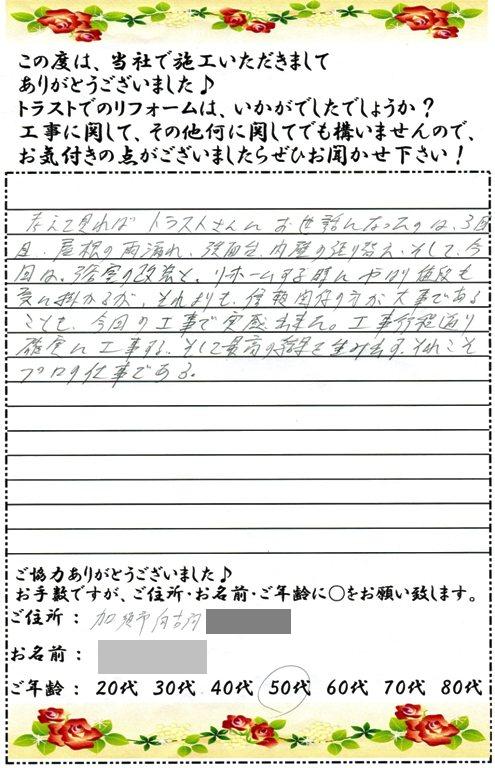 この度は、当社で施工いただきまして
ありがとうございました♪
トラストでのリフォームは、いかがでしたでしょうか？
工事に関して、その他何に関してでも構いませんので、
お気付きの点がございましたらぜひお聞かせ下さい！
考えて見れば トラストさんに お世話になったのは、3回
目、屋根の雨漏れ、洗面台、内壁の張り替え、そして、今
回は、浴室の改装と、リホームする時に やはり値段も
気に掛かるが、それよりも、信頼関係の方が大事である
ことも、今回の工事で実感出来ました。工事行程通り
確実に工事する、そして最高の結果を生み出す、それこそ
プロの仕事である。
ご協力ありがとうございました♪
お手数ですが、ご住所・お名前・ご年齢に○をお願い致します。
ご住所： 加須市向古河
お名前：
ご年齢： 20代 30代 40代 50代 60代 70代 80代